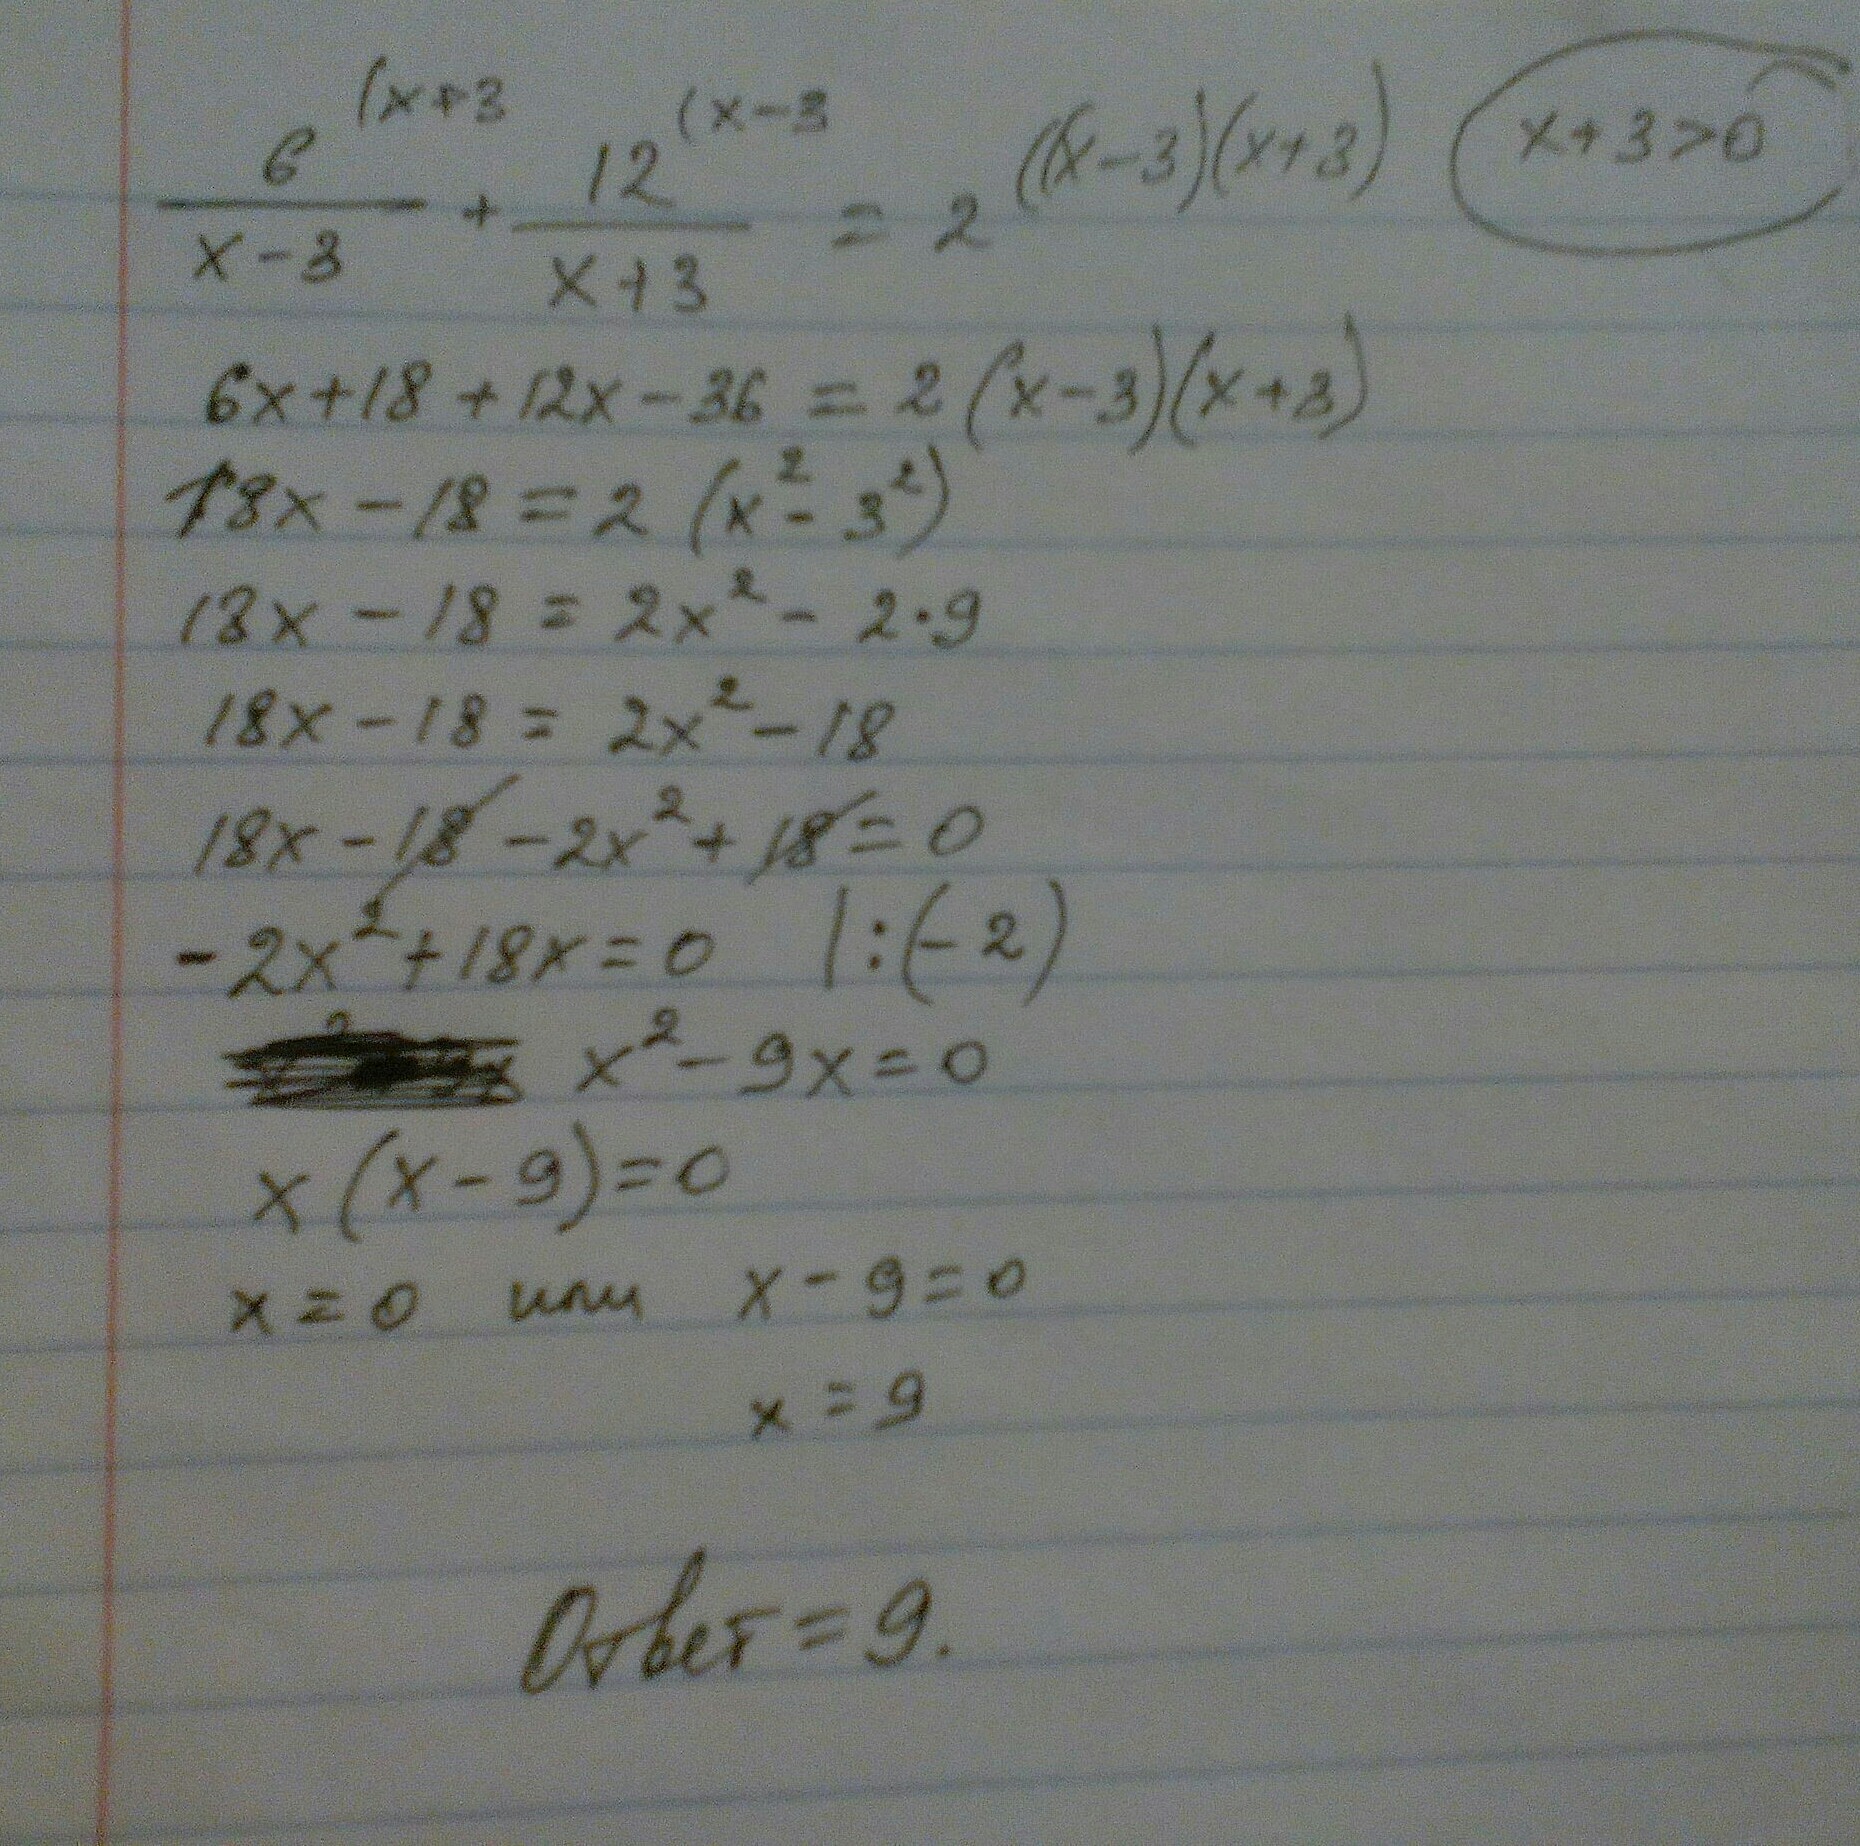 6 (x+3 / x-3 + 12 (x-3 / x+3 = 2 ((x-3)(x+3) x+3>0
6x+18+12x-36=2(x-3)(x+3)
18x-18=2(x²-3²)
18x-18=2x²-2·9
18x-18=2x²-18
18x-18-2x²+18=0
-2x²+18x=0 |:(-2)
x²-9x=0
x(x-9)=0
x=0 или x-9=0
x=9
Ответ=9.